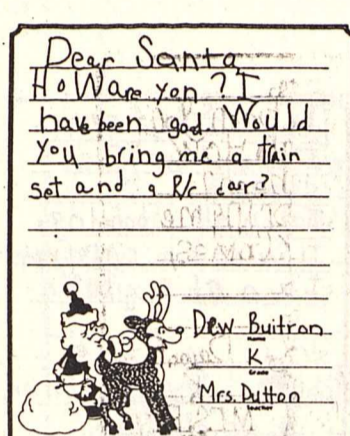 Dear Santa
How are you? I
have been god. Would
you bring me a train
set and a R/c car?
Dew Buitron
Name
K
Grade
Mrs. Dutton
Teacher